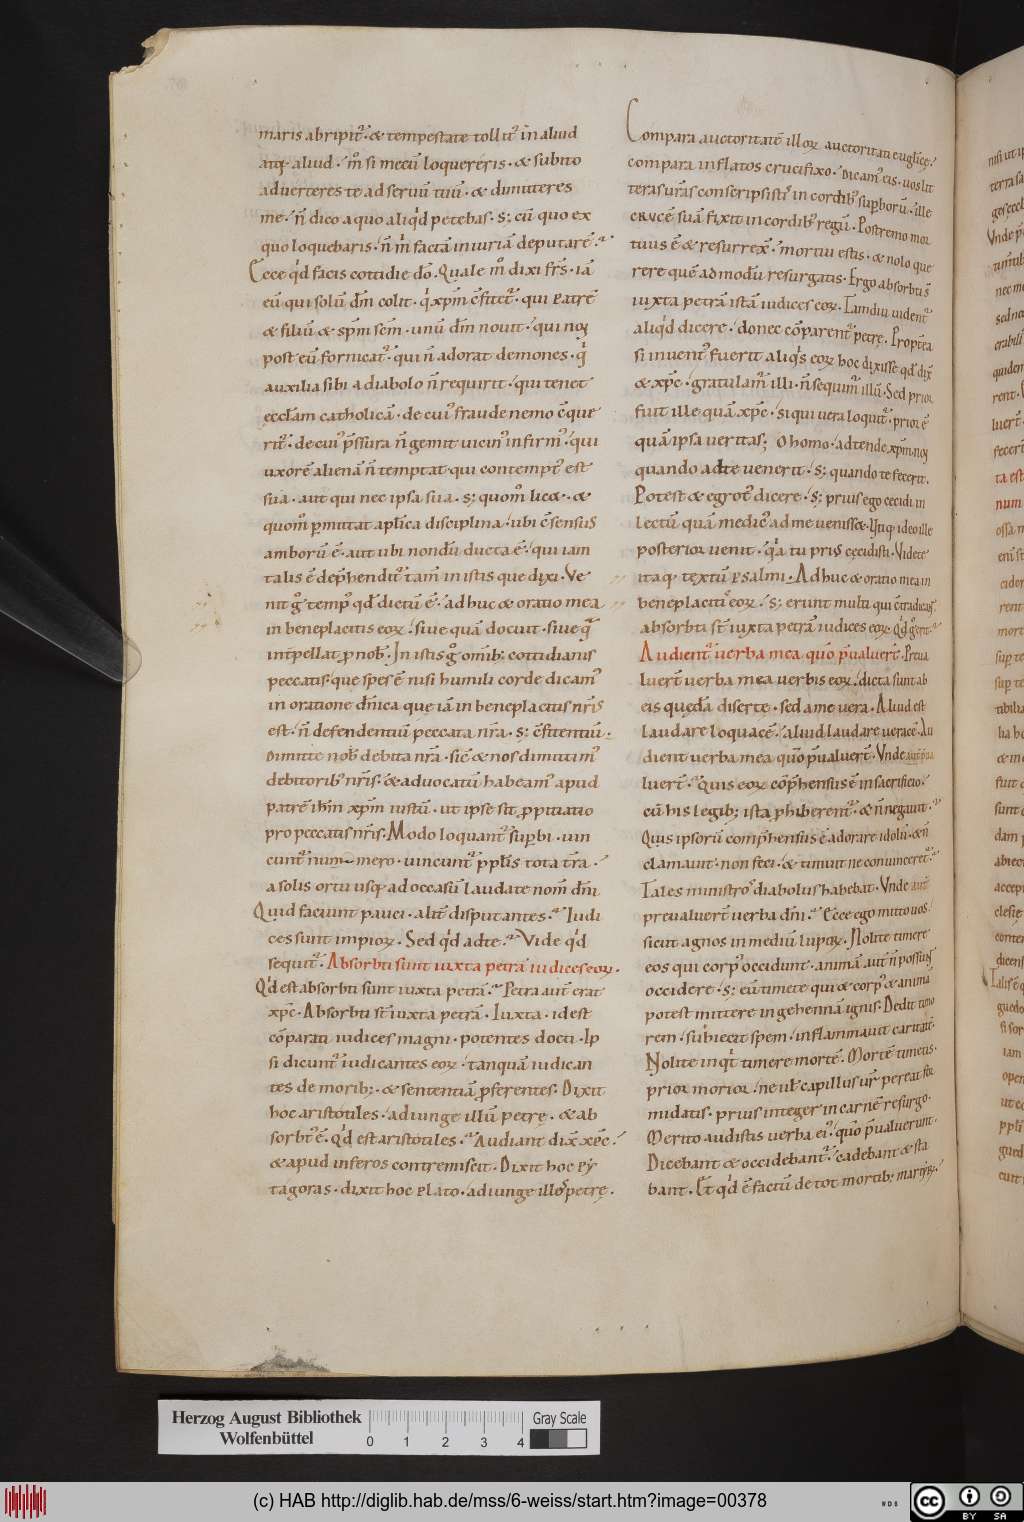 maris abripit᷒. & tempestate tollit᷒ in aliud
atq; aliud. m̊ si mecū loquereris. & subito
aduerteres te ad seruū tuū. & dimitteres
me. n̄ dico a quo aliqd petebas. s; cū quo ex
quo loquebaris. n̄ m̍ factā iniuriā deputarē.
Ecce qd facis cottidie dō. Quale m̊ dixi frs̄. iā
eū qui solū dm̄ colit. q̍ xpm̄ c̄fitet᷒. qui patrē
& filiū & spm̄ scm̄. unū dm̄ nouit. qui nō
post eū fornicat᷒. qui n̄ adorat demones. q̍
auxilia sibi a diabolo n̄ requirit. qui tenet
ęcclam catholicā. de cui᷒ fraude nemo c̄que
rit᷒. de cui᷒ p̄ssura n̄ gemit uicin᷒ infirm᷒. qui
uxorē alienā n̄ temptat qui contempt᷒ est
sua. aut qui nec ipsa sua. s; quom̊ lic&. &
quom̊ pmittat aplica disciplina. ubi c̄sensus
amborū ē. aut ubi nondū ducta ē. qui iam
talis ē dep̄hendit᷒ tam̄ in istis que dixi. Ve
nit g̊ temp᷒ qd dictū ē. adhuc & oratio mea
in beneplacitis eoꝝ. siue quā docuit. siue q̄
int̄pellat p nob᷒. In istis g̊ omib; cottidianis
peccatis. que spes ē nisi humili corde dicam᷒
in oratione dn̄ica que iā in beneplacitis nr̄is
est. n̄ defendentiū peccata nr̄a. s; c̄fitentiū.
Dimitte nob᷒ debita nr̄a. sic̄ & nos dimittim᷒
debitorib᷒ nr̄is. & aduocatū habeam᷒ apud
patrē ihm̄ xpm̄ iustū. ut ipse sit ppitiatio
pro peccatis nr̄is. Modo loquant᷒ supbi. uin
cunt᷒ numero. uincunt᷒ pplis tota tr̄a.
a solis ortu usq; ad occasū laudate nom̄ dn̄i
Quid faciunt pauci. alit̄ disputantes. Iudi
ces sunt impioꝝ. Sed qd ad te. Vide qd
sequit᷒. Absorbti sunt iuxta petrā iudices eoꝝ.
Qd est absorbti sunt iuxta petrā. Petra aut̄ erat
xpc̄. Absorbti st̄ iuxta petrā. Iuxta. id est
cōparati iudices magni. potentes docti. Ip
si dicunt᷒ iudicantes eoꝝ. tanquā iudican
tes de morib;. & sententiā pferentes. Dixit
hoc aristotiles. adiunge illū petrę. & ab
sorbt᷒ ē. Qd est aristotiles. Audiant dix̄ xpc̄.
& apud inferos contremiscit. Dixit hoc py
tagoras. dixit hoc plato. adiunge illos petrę.
Compara auctoritatē illoꝝ auctoritati euglicę.
compara inflatos crucifixo. Dicam᷒ eis. uos lit
teras ur̄as conscripsistis in cordib᷒ supborū. ille
crucē suā fixit in cordib᷒ regū. Postremo mor
tuus ē & resurrex̄. mortui estis. & nolo que
rere quē admodū resurgatis. Ergo absorbti s̄
iuxta petrā istā iudices eoꝝ. Tamdiu uident᷒
aliqd dicere. donec cōparent᷒ petrę. Propt̄ea
si inuent᷒ fuerit aliqs eoꝝ hoc dixisse qd dix̄
& xpc̄. gratulam᷒ illi. n̄ sequim᷒ illū. Sed prior
fuit ille quā xpc̄. si qui uera loquit᷒. prior ē
quā ipsa ueritas; O homo. adtende xpm̄. nō
quando ad te uenerit. s; quando te fecerit.
Potest & egrot᷒ dicere. s; prius ego cecidi in
lectū quā medic᷒ ad me uenisset. Itaq; ideo ille
posterior uenit. qa tu prius cęcidisti. Videte
itaq; textū psalmi. Adhuc & oratio mea in
beneplacitis eoꝝ. s; erunt multi qui c̄tradicant.
absorbti st̄ iuxta petrā iudices eoꝝ. Qd g̊ erit.
Audient᷒ uerba mea quō p̄ualuer̄. Preua
luer̄ uerba mea uerbis eoꝝ. dicta sunt ab
eis quędā diserte. sed a me uera. Aliud est
laudare loquacē. aliud laudare ueracē. Au
dient uerba mea quō p̄ualuer̄. Vnde aut̄ p̄ua
luer̄. Quis eoꝝ cōp̄hensus ē in sacrificio.
cū his legib; ista phiberent᷒. & n̄ negauit.
Quis ipsorū comp̄hensus ē adorare idolū. & n̄
clamauit. non feci. & timuit ne conuinceret᷒.
Tales ministros diabolus habebat. Vnde aut̄
preualuer̄ uerba dn̄i. Ecce ego mitto uos.
sicut agnos in mediū lupoꝝ. Nolite timere
eos qui corp᷒ occidunt. animā aut̄ n̄ possunt
occidere. s; eū timete qui & corp᷒ & animā
potest mittere in gehennā ignis. Dedit timo
rem. subiecit spem. inflammauit caritatē.
Nolite inqt timere mortē. Mortē timetis.
prior morior. ne ul̄ capillus ur̄ pereat for
midatis. prius integer in carnē resurgo.
Merito audistis uerba ei᷒. quō p̄ualuerunt.
Dicebant & occidebant᷒. cadebant & sta
bant. Et qd ē factū de tot mortib; martyrū.
Herzog August Bibliothek
Wolfenbüttel
0 1 2 3 4
Gray Scale
(c) HAB http://diglib.hab.de/mss/6-weiss/start.htm?image=00378
WDB
cc BY SA